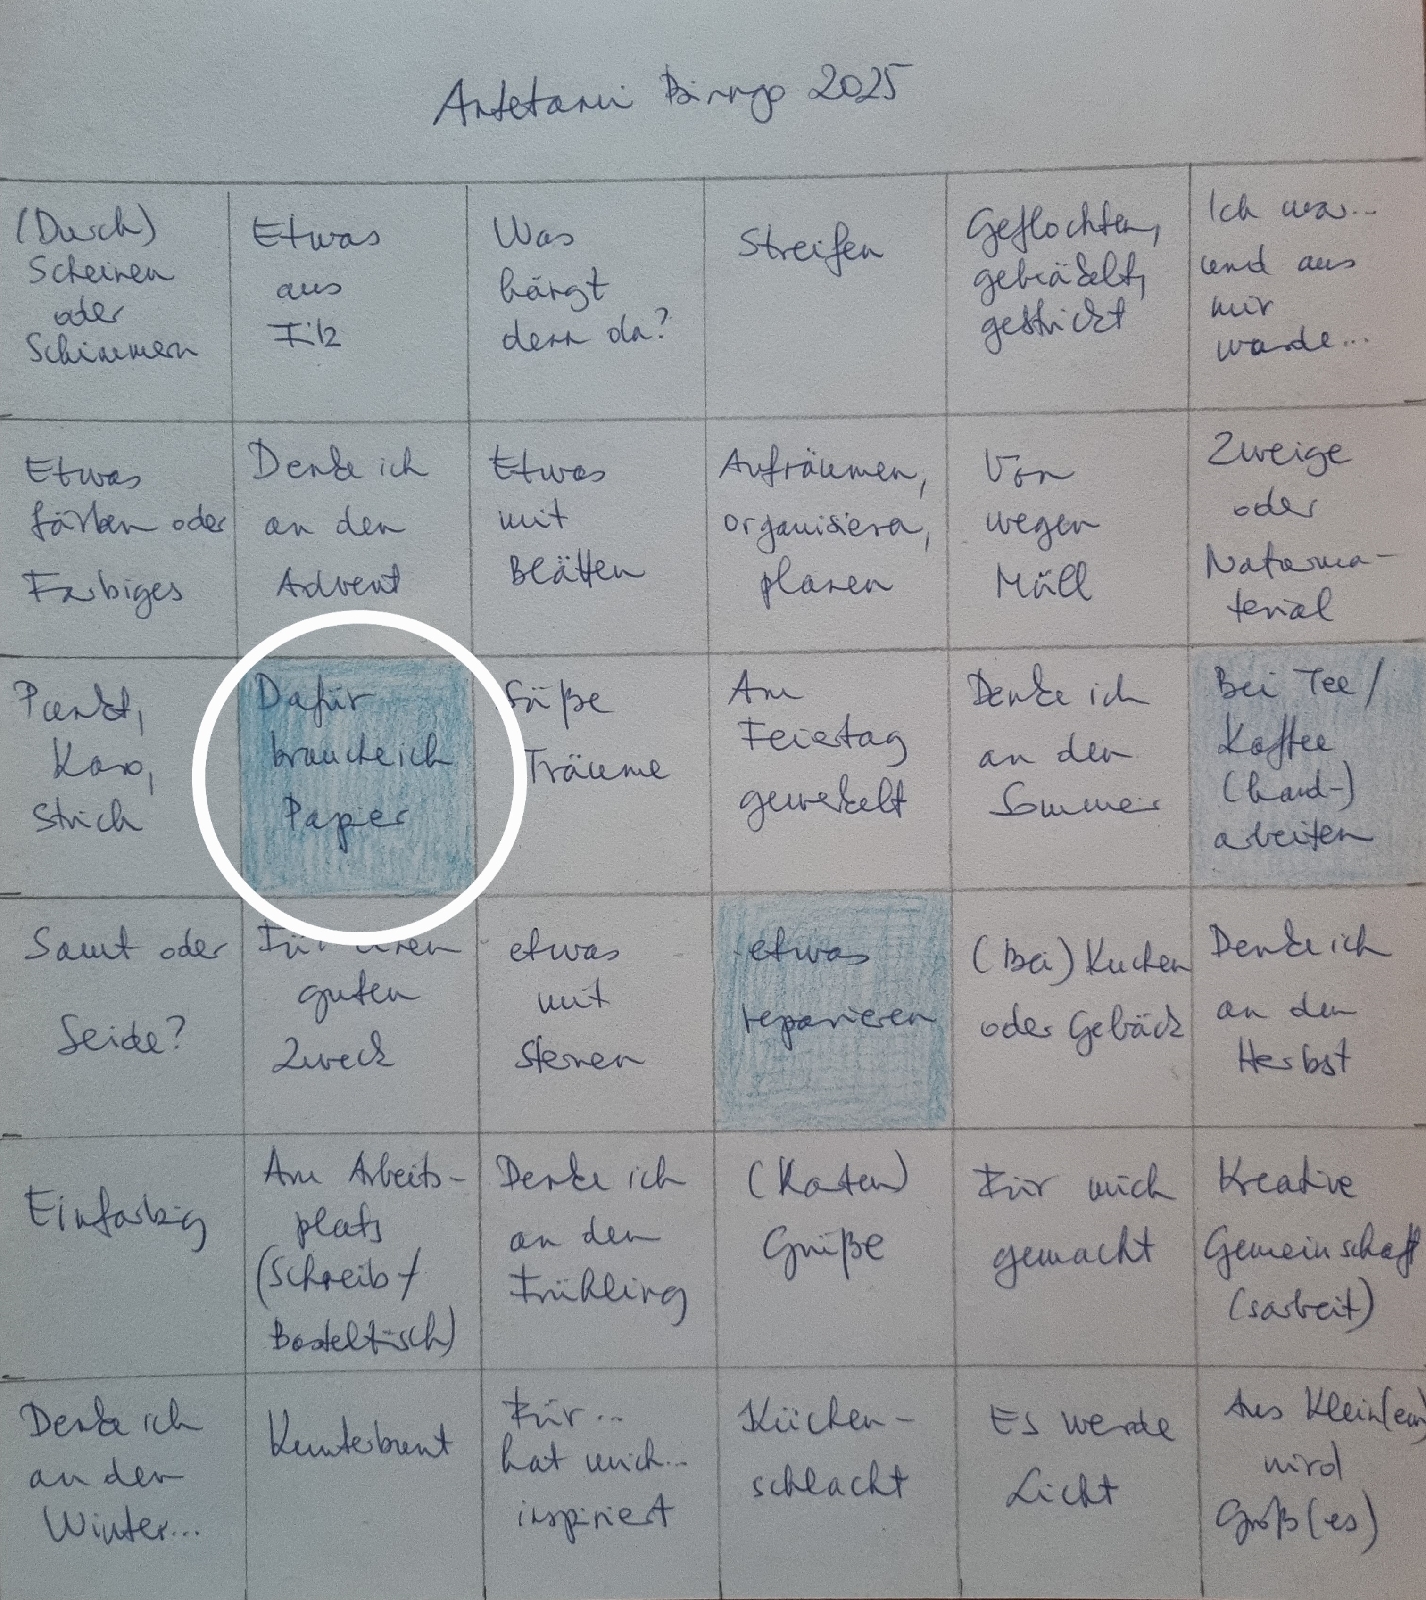 Antetanni Binngo 2025
(Durch)
Scheinen
oder
Schimmern
Etwas
aus
Filz
Was
hängt
denn da?
Streifen
Geflochten,
gehäkelt,
gestrickt
Ich war...
und aus
mir
wurde...
Etwas
färben oder
Farbiges
Denke ich
an den
Advent
Etwas
mit
Blättern
Aufräumen,
organisieren,
planen
Von
wegen
Müll
Zweige
oder
Naturma-
terial
Punkt,
Karo,
Strich
Dafür
brauche ich
Papier
Süße
Träume
Am
Feiertag
gewerkelt
Denke ich
an den
Sommer
Bei Tee/
Kaffee
(hand-)
arbeiten
Samt oder
Seide?
Für einen
guten
Zweck
etwas
mit
Sternen
etwas
reparieren
(Bei) Kuchen
oder Gebäck
Denke ich
an den
Herbst
Einfarbig
Am Arbeits-
platz
(Schreib-/
Basteltisch)
Denke ich
an den
Frühling
(Karten)
Grüße
Für mich
gemacht
Kreative
Gemeinschaft
(sarbeit)
Denke ich
an den
Winter...
Kunterbunt
Für...
hat mich...
inspiriert
Küchen-
schlacht
Es werde
Licht
Aus Klein(em)
wird
Groß(es)